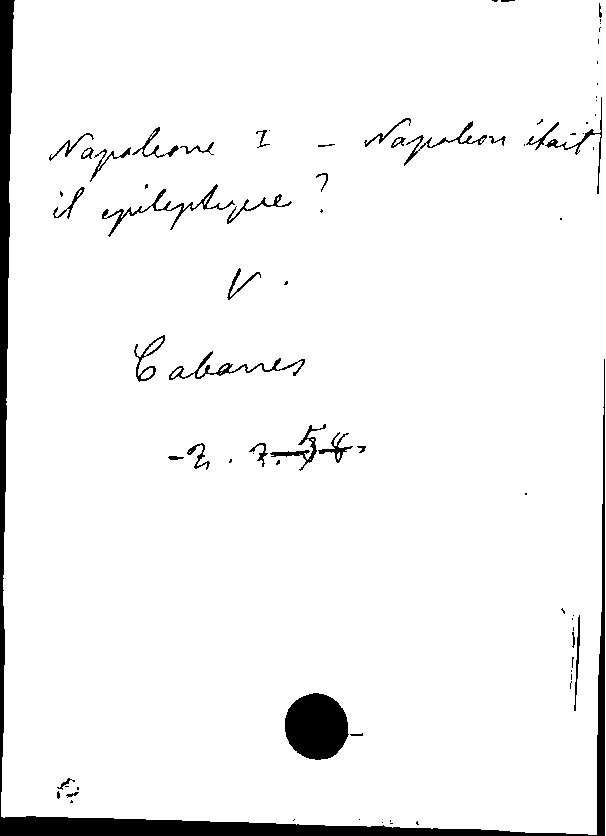 Napoleone I - Napoleon était
il epileptique ?
V.
Cabanes